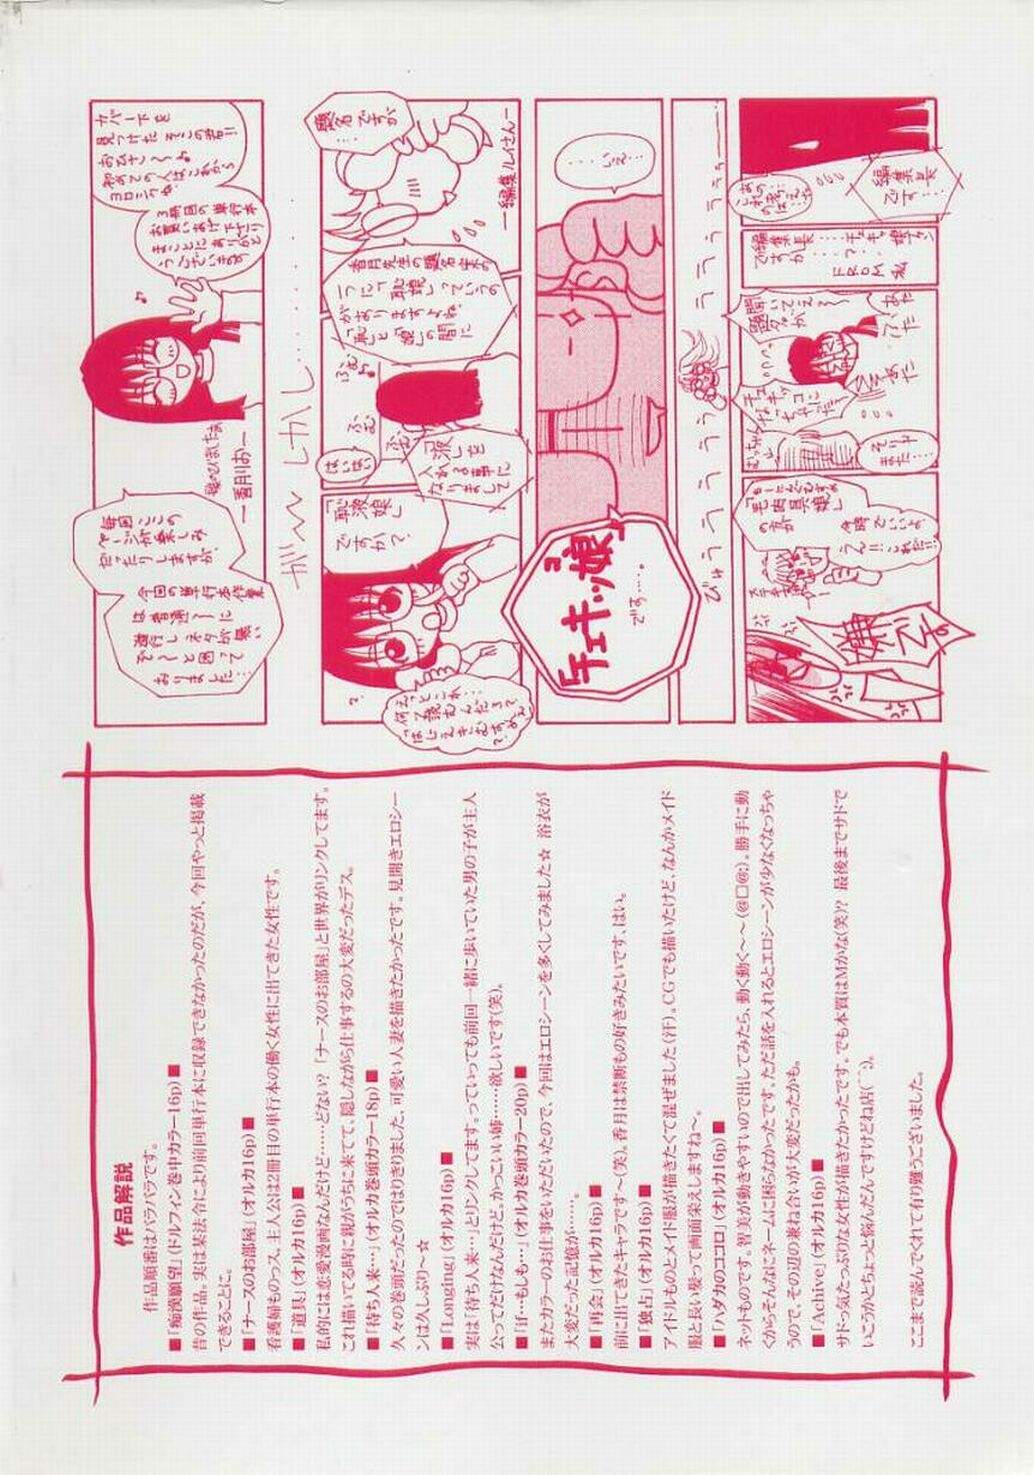 カバー下を
見つけたそこの君!!
おひさ~♪
初めての人はこれから
ヨロシクね
3冊目の単行本
お買いあげ下さり
まことにありがと
うございます
♪
髪のびましたね
―香月りお―
毎回ここの
ページが楽しみ
だったりしますが、
今回の単行本作業
は普通~に
進行しネタが無い
ぞ~と困って
おりました…
が~
しかし………
題名ですが…
―編集ルイさん―
香月先生の題名案の
一つに「恥娘」っていうの
がありますよね、
「恥」と「娘」の間に
ふむ
ふむ
ふむ
「液」を
入れる事に
なりまして
はいはい
「恥液娘」
ですか?
?
……いえ…
チェキッ娘
です……。
びゅうううううう
編集長
です…
編集長……チェキッ娘ファン
ですか……?
FROM 私
あた
ふた
あた
そりゃ
また…
作品解説
作品順番はバラバラです。
■「痴漢願望」(ドルフィン巻中カラー16p)■
昔の作品。実は某法令により前回単行本に収録できなかったのだが、今回やっと掲載
できることに。
■「ナースのお部屋」(オルカ16p)■
看護婦ものっス。主人公は2冊目の単行本の働く女性に出てきた女性です。
■「道具」(オルカ16p)■
私的には恋愛漫画なんだけど……どない?「ナースのお部屋」と世界がリンクしてます。
これ描いてる時に親がうちに来てて、隠しながら仕事するの大変だったデス。
■「待ち人来…」(オルカ巻頭カラー18p)■
久々の巻頭だったのではりきりました、可愛い人妻を描きたかったです。見開きエロシー
ンは久しぶり~☆
■「Longing」(オルカ16p)■
実は「待ち人来…」とリンクしてます。っていっても前回一緒に歩いていた男の子が主人
公ってだけなんだけど。かっこいい姉……欲しいです(笑)。
■「if…もしも…」(オルカ巻頭カラー20p)■
またカラーのお仕事をいただいたので、今回はエロシーンを多くしてみました☆ 浴衣が
大変だった記憶が……。
■「再会」(オルカ16p)■
前に出てきたキャラです~(笑)。香月は禁断もの好きみたいです、はい。
■「独占」(オルカ16p)■
アイドルものとメイド服が描きたくて混ぜました(汗)。CGでも描いたけど、なんかメイド
服と長い髪って画面栄えしますね~。
■「ハダカのココロ」(オルカ16p)■
ネットものです。智美が動きやすいので出してみたら、動く動く~~(@□@;)。勝手に動
くからそんなにネームに困らなかったです。ただ話を入れるとエロシーンが少なくなっちゃ
うので、その辺の兼ね合いが大変だったかも。
■「Achive」(オルカ16p)■
サドっ気たっぷりな女性が描きたかったです。でも本質はMかな(笑)?? 最後までサドで
いこうかとちょっと悩んだんですけどね店(⌒⌒;)。
ここまで読んでくれて有り難うございました。